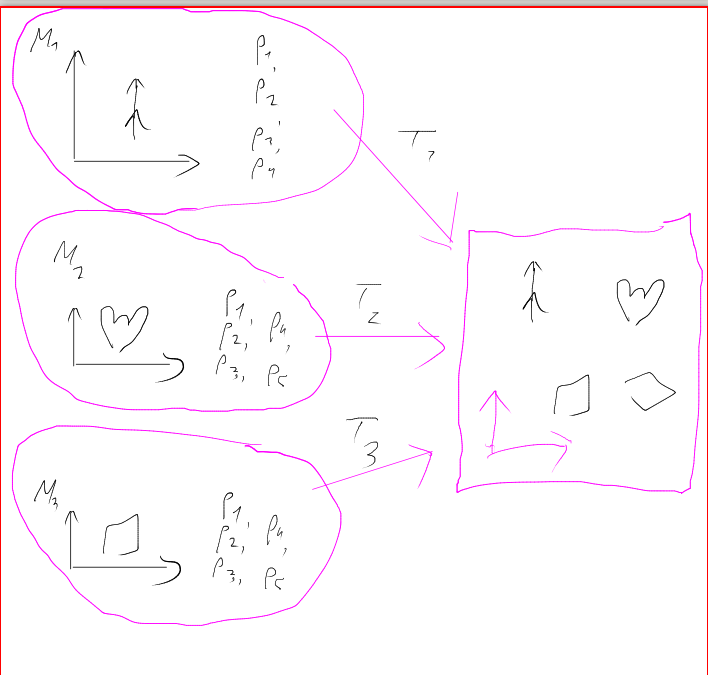 M₁
P₁,
P₂
P₃,
P₄
T₁
M₂
P₁,
P₂, P₄,
P₃, P₅
T₂
T₃
M₃
P₁,
P₂, P₄,
P₃, P₅